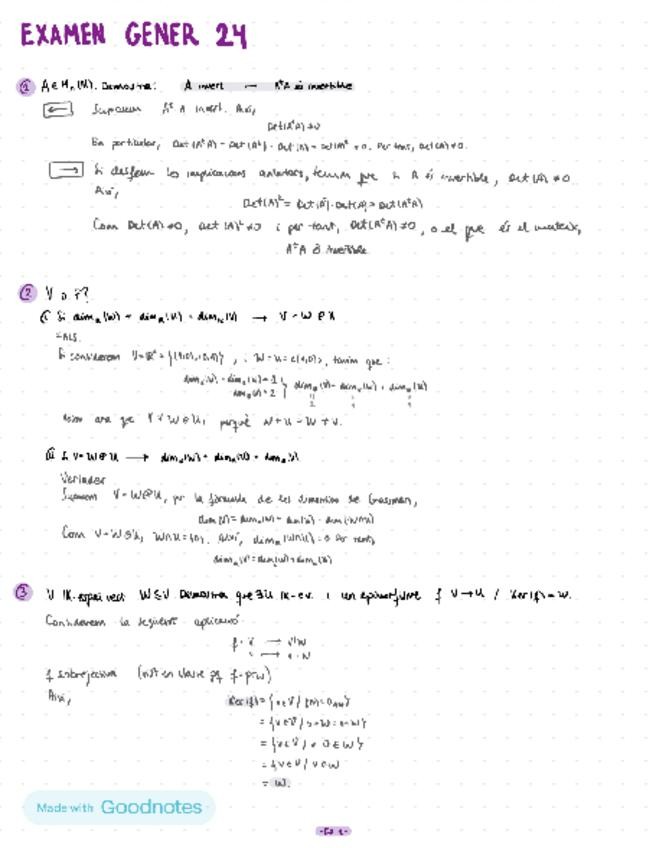 EXAMEN GENER 24
① A ∈ Mₙ(K). Demostra: A invert ⟷ AᵗA és invertible
← Suposem AᵗA invert. Així,
Det(AᵗA) ≠ 0
En particular, Det(AᵗA) = Det(Aᵗ) · Det(A) = Det(A)² ≠ 0. Per tant, Det(A) ≠ 0.
→ Si desfem les implicacions anteriors, tenim que si A és invertible, Det(A) ≠ 0
Així,
Det(A)² = Det(Aᵗ) · Det(A) = Det(AᵗA)
Com Det(A) ≠ 0, Det(A)² ≠ 0 i per tant, Det(AᵗA) ≠ 0, o el que és el mateix,
AᵗA és invertible
② V o F?
Si dim(W) + dim(U) = dim(V) → V = W ⊕ U
FALS.
Si considerem
i W = U = tenim que:
perquè W + U = W ≠ V.
Si V = W ⊕ U → dim(W) + dim(U) = dim(V)
Verdader
Suposem V = W ⊕ U, per la fórmula de les dimensions de Grassman,
dim(V) = dim(W) + dim(U) - dim(W∩U)
Com V = W ⊕ U, W∩U = {0}. Així, dim(W∩U) = 0. Per tant,
dim(V) = dim(W) + dim(U)
③ V K-espai vect W ≤ V. Demostra que ∃ U K-ev. i un epimorfisme f: V → U / Ker(f) = W.
Considerem la següent aplicació
f: V → V/W
v → v + W
f sobrejectiva (vist en classe
Així,
Ker(f) = {v ∈ V / f(v) = 0
= {v ∈ V / v + W = 0 + W}
= {v ∈ V / v - 0 ∈ W}
= {v ∈ V / v ∈ W}
= W.
Made with Goodnotes